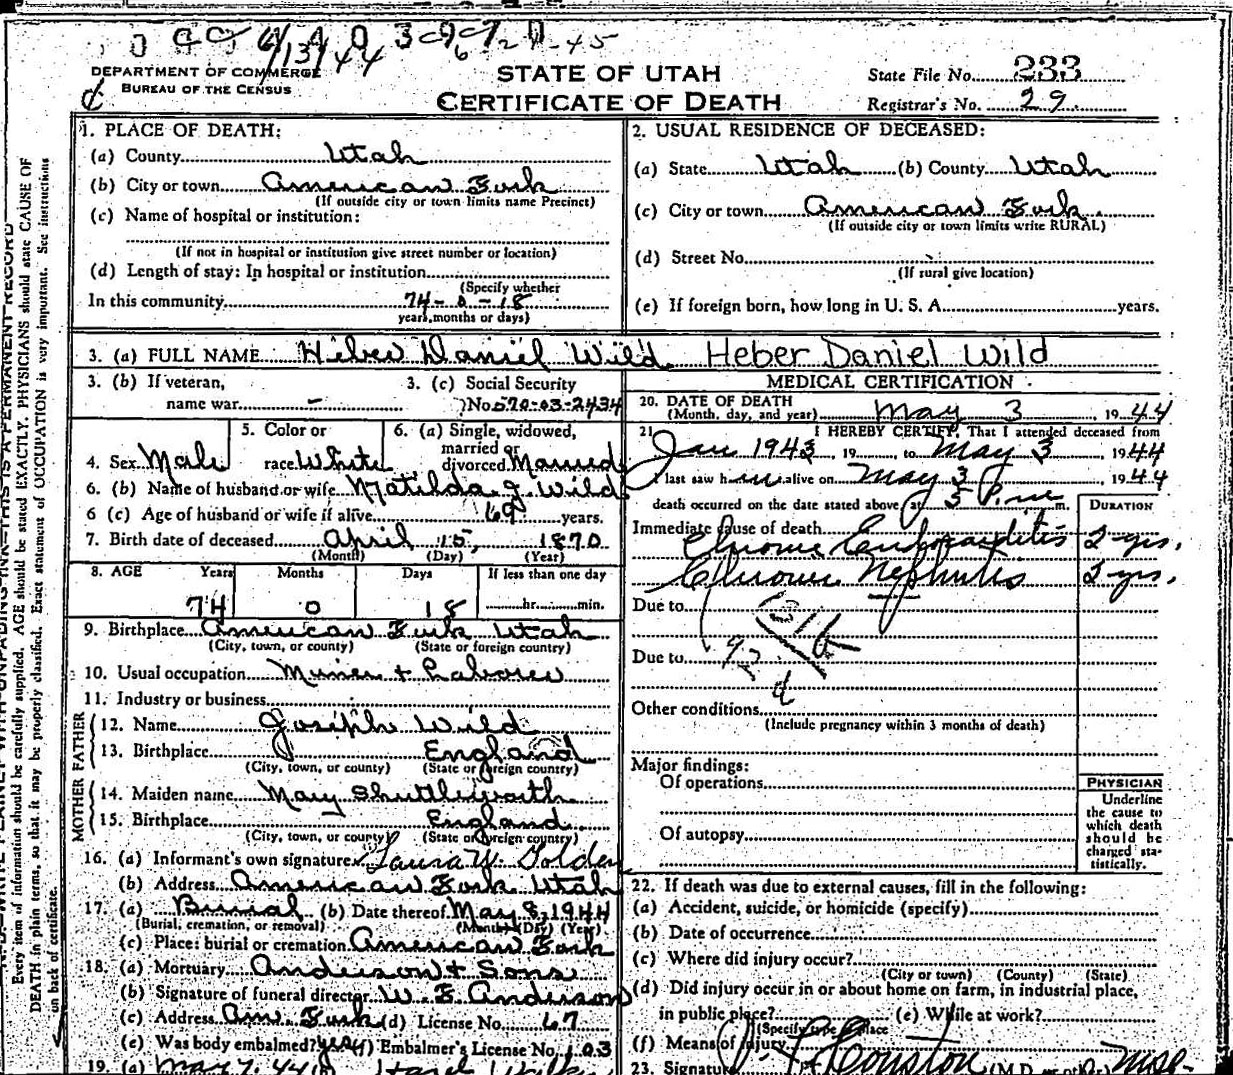 6/13/44
DEPARTMENT OF COMMERCE
BUREAU OF THE CENSUS
STATE OF UTAH
CERTIFICATE OF DEATH
State File No. 233
Registrar's No. 29
1. PLACE OF DEATH:
(a) County Utah
(b) City or town American Fork
(If outside city or town limits name Precinct)
(c) Name of hospital or institution:
(If not in hospital or institution give street number or location)
(d) Length of stay: In hospital or institution
(Specify whether
In this community 74-0-18
years, months or days)
2. USUAL RESIDENCE OF DECEASED:
(a) State Utah (b) County Utah
(c) City or town American Fork
(If outside city or town limits write RURAL)
(d) Street No.
(If rural give location)
(e) If foreign born, how long in U. S. A. years.
3. (a) FULL NAME Heber Daniel Wild Heber Daniel Wild
3. (b) If veteran, name war -
3. (c) Social Security No. 570-03-2434
4. Sex Male
5. Color or race White
6. (a) Single, widowed, married or divorced Married
6. (b) Name of husband or wife Matilda J. Wild
6 (c) Age of husband or wife if alive 69 years.
7. Birth date of deceased April 15, 1870
(Month) (Day) (Year)
8. AGE Years Months Days If less than one day
74 0 18 hr. min.
9. Birthplace American Fork Utah
(City, town, or county) (State or foreign country)
10. Usual occupation Miner + Laborer
11. Industry or business
FATHER
12. Name Joseph Wild
13. Birthplace England
(City, town, or county) (State or foreign country)
MOTHER
14. Maiden name Mary Shuttleworth
15. Birthplace England
(City, town, or county) (State or foreign country)
16. (a) Informant's own signature Laura W. Golden
(b) Address American Fork Utah
17. (a) Burial (b) Date thereof May 8, 1944
(Burial, cremation, or removal) (Month) (Day) (Year)
(c) Place: burial or cremation American Fork
18. (a) Mortuary Anderson + Sons
(b) Signature of funeral director W. E. Anderson
(c) Address Am. Fork (d) License No. 67
(e) Was body embalmed? yes (f) Embalmer's License No. 103
19. (a) May 7, 44
MEDICAL CERTIFICATION
20. DATE OF DEATH
(Month, day, and year) May 3, 1944
21. I HEREBY CERTIFY, That I attended deceased from
Jan 1943, 19 to May 3, 1944
I last saw him alive on May 3, 1944
death occurred on the date stated above at 5 P.m m.
DURATION
Immediate cause of death Chronic Endocarditis 2 yrs.
Chronic Nephritis 2 yrs.
Due to
Due to 92
Other conditions
(Include pregnancy within 3 months of death)
Major findings:
Of operations
Of autopsy
PHYSICIAN
Underline
the cause to
which death
should be
charged sta-
tistically.
22. If death was due to external causes, fill in the following:
(a) Accident, suicide, or homicide (specify)
(b) Date of occurrence
(c) Where did injury occur?
(City or town) (County) (State)
(d) Did injury occur in or about home on farm, in industrial place,
in public place? (e) While at work?
(Specify type place
(f) Means of injury
23. Signature Houston (M.D. or other)
Every item of information should be carefully supplied. AGE should be stated EXACTLY. PHYSICIANS should state CAUSE OF
DEATH in plain terms, so that it may be properly classified. Exact statement of OCCUPATION is very important. See instructions
on back of certificate.